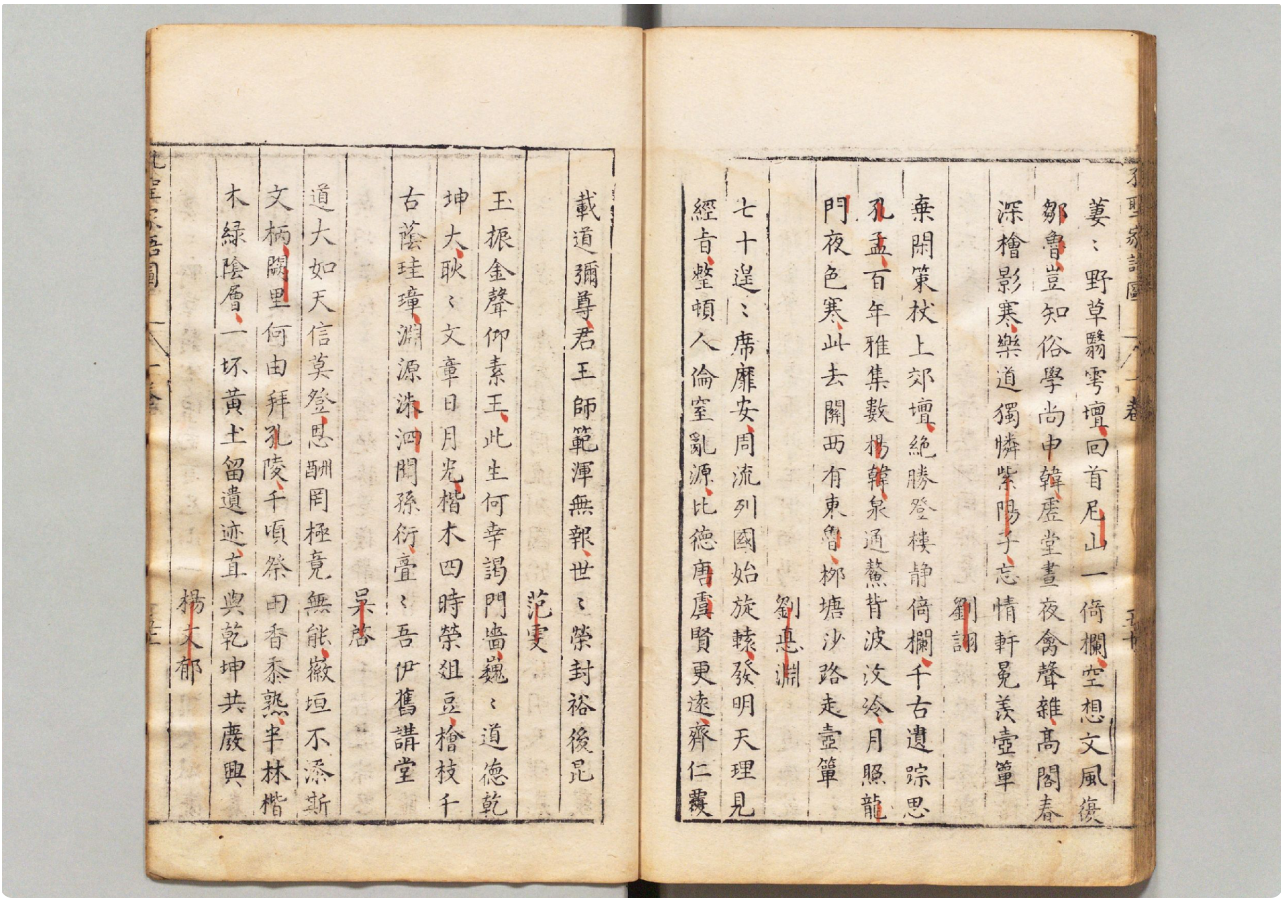 萋〻野草翳雩壇回首尼山一倚欄空想文風復
鄒魯豈知俗學尚申韓虛堂晝夜禽聲雜高閣春
深檜影寒樂道獨憐紫陽子忘情軒冕羨壺簞
劉詡
棄閑策杖上郊壇絕勝登樓静倚欄千古遺踪思
孔孟百年雅集數楊韓泉通鰲背波汶冷月照龍
門夜色寒此去關西有東魯柳塘沙路走壺簞
劉惪淵
七十遑〻席靡安周流列國始旋轅發明天理見
經旨整頓人倫窒亂源比德唐虞賢更遠齊仁覆
載道彌尊君王師範渾無報世〻榮封裕後昆
范雯
玉振金聲仰素王此生何幸謁門墻巍〻道德乾
坤大耿〻文章日月光楷木四時榮俎豆檜枝千
古蔭珪璋淵源洙泗聞孫衍亹〻吾伊舊講堂
吳啓
道大如天信莫登恩酬罔極竟無能薇垣不添斯
文柄闕里何由拜孔陵千頃祭田香黍熟半林楷
木緑陰層一坏黃土留遺迹直與乾坤共廢興
楊文郁
孔聖家語圖
一卷
孔聖家語圖